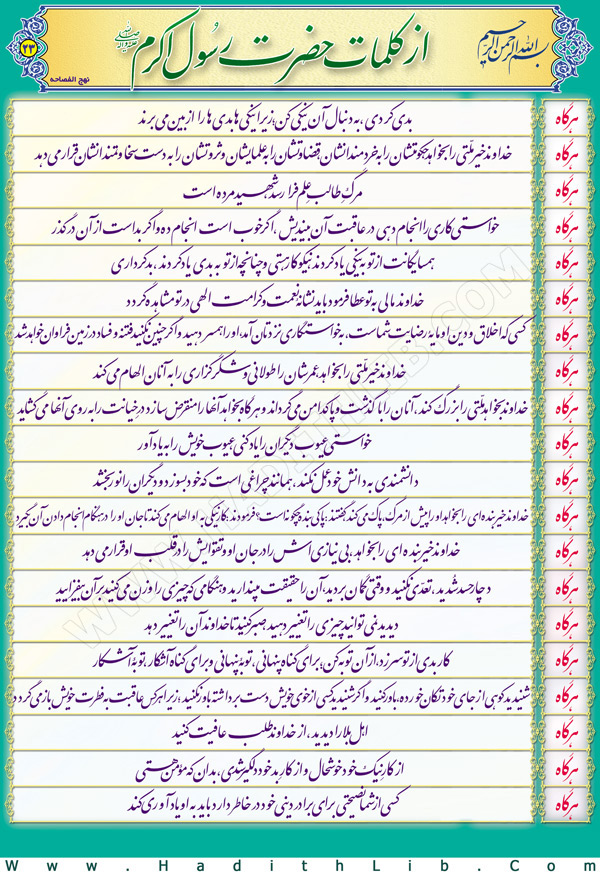 بسم الله الرحمن الرحیم
از کلمات حضرت رسول اکرم صلی الله علیه وآله
۲۳
نهج الفصاحه
هرگاه بدی کردی، به دنبال آن نیکی کن؛ زیرا نیکی ها بدی ها را از بین می برند
هرگاه خداوند خیر ملّتی را بخواهد حکومتشان را به خردمندانشان، قضاوتشان را به علمایشان و ثروتشان را به دست سخاوتمندانشان قرار می دهد
هرگاه مرگ طالب علم فرا رسد شهید مرده است
هرگاه خواستی کاری را انجام دهی در عاقبت آن بیندیش، اگر خوب است انجام ده و اگر بد است از آن در گذر
هرگاه همسایگانت از تو به نیکی یاد کردند نیکوکار هستی و چنانچه از تو به بدی یاد کردند، بد کرداری
هرگاه خداوند مالی به تو عطا فرمود باید نشانه نعمت و کرامت الهی در تو مشاهده گردد
هرگاه کسی که اخلاق و دین او مایه رضایت شماست، به خواستگاری نزدتان آمد، او را همسر دهید و اگر چنین نکنید فتنه و فساد در زمین فراوان خواهد شد
هرگاه خداوند خیر ملّتی را بخواهد عمرشان را طولانی و شکرگزاری را به آنان الهام می کند
هرگاه خداوند بخواهد ملّتی را بزرگ کند، آنان را با گذشت و پاکدامن می گرداند و هرگاه بخواهد آنها را منقرض سازد در خیانت را به روی آنها می گشاید
هرگاه خواستی عیوب دیگران را یاد کنی عیوب خویش را به یاد آور
هرگاه دانشمندی به دانش خود عمل نکند، همانند چراغی است که خود بسوزد و دیگران را نور بخشد
هرگاه خداوند خیر بنده ای را بخواهد او را پیش از مرگ، پاک می کند گفتند: پاکی بنده چگونه است؟ فرمودند: کار نیکی به او الهام می کند تا جان او را در هنگام انجام دادن آن بگیرد
هرگاه خداوند خیر بنده ای را بخواهد، بی نیازی اش را در جان او و تقوایش را در قلب او قرار می دهد
هرگاه دچار حسد شدید، تعدّی نکنید و وقتی گمان بردید، آن را حقیقت مپندارید و هنگامی که چیزی را وزن می کنید بر آن بیفزایید
هرگاه دیدید نمی توانید چیزی را تغییر دهید صبر کنید تا خداوند آن را تغییر دهد
هرگاه کار بدی از تو سر زد، از آن توبه کن؛ برای گناه پنهانی، توبۀ پنهانی و برای گناه آشکار، توبۀ آشکار
هرگاه شنیدید کوهی از جای خود تکان خورده، باور کنید و اگر شنیدید کسی از خوی خویش دست برداشته باور نکنید؛ زیرا هر کس عاقبت به فطرت خویش باز می گردد
هرگاه اهل بلا را دیدید، از خداوند طلب عافیت کنید
هرگاه از کار نیک خود خوشحال و از کار بد خود دلگیر شدی، بدان که مؤمن هستی
هرگاه کسی از شما نصیحتی برای برادر دینی خود در خاطر دارد باید به او یادآوری کند
www.HadithLib.Com